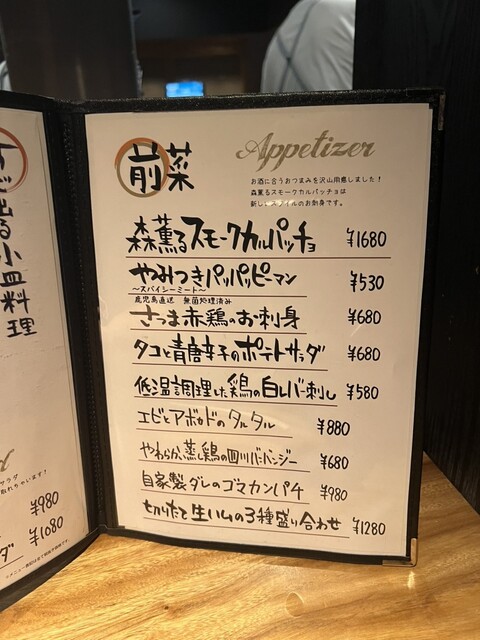 すぐ出る小皿料理
サラダ
取れちゃいます！
¥980
¥1080
ダ
前菜
Appetizer
お酒に合うおつまみを沢山用意しました！
森薫るスモークカルパッチョは
新しいスタイルのお刺身です。
森薫るスモークカルパッチョ ¥1680
やみつきパッパッピーマン ¥530
〜スパイシーミート〜
鹿児島直送 無菌処理済み
さつま赤鶏のお刺身 ¥680
タコと青唐辛子のポテトサラダ ¥680
低温調理した鶏の白レバー刺し ¥580
エビとアボカドのタルタル ¥880
やわらか蒸し鶏の四川バンバンジー ¥680
自家製ダレのゴマカンパチ ¥980
切りたて生ハムの3種盛り合わせ ¥1280